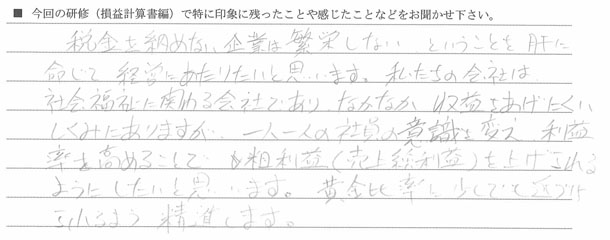 ■ 今回の研修（損益計算書編）で特に印象に残ったことや感じたことなどをお聞かせ下さい。
税金を納めない企業は繁栄しない ということを肝に
命じて 経営にあたりたいと思います。私たちの会社は
社会福祉に関わる会社であり、なかなか 収益をあげにくい
しくみにありますが、一人一人の社員の意識を変え 利益
率を高めることで 粗利益（売上総利益）を上げられる
ようにしたいと思います。黄金比率に少しでも近づけ
られるよう 精進します。